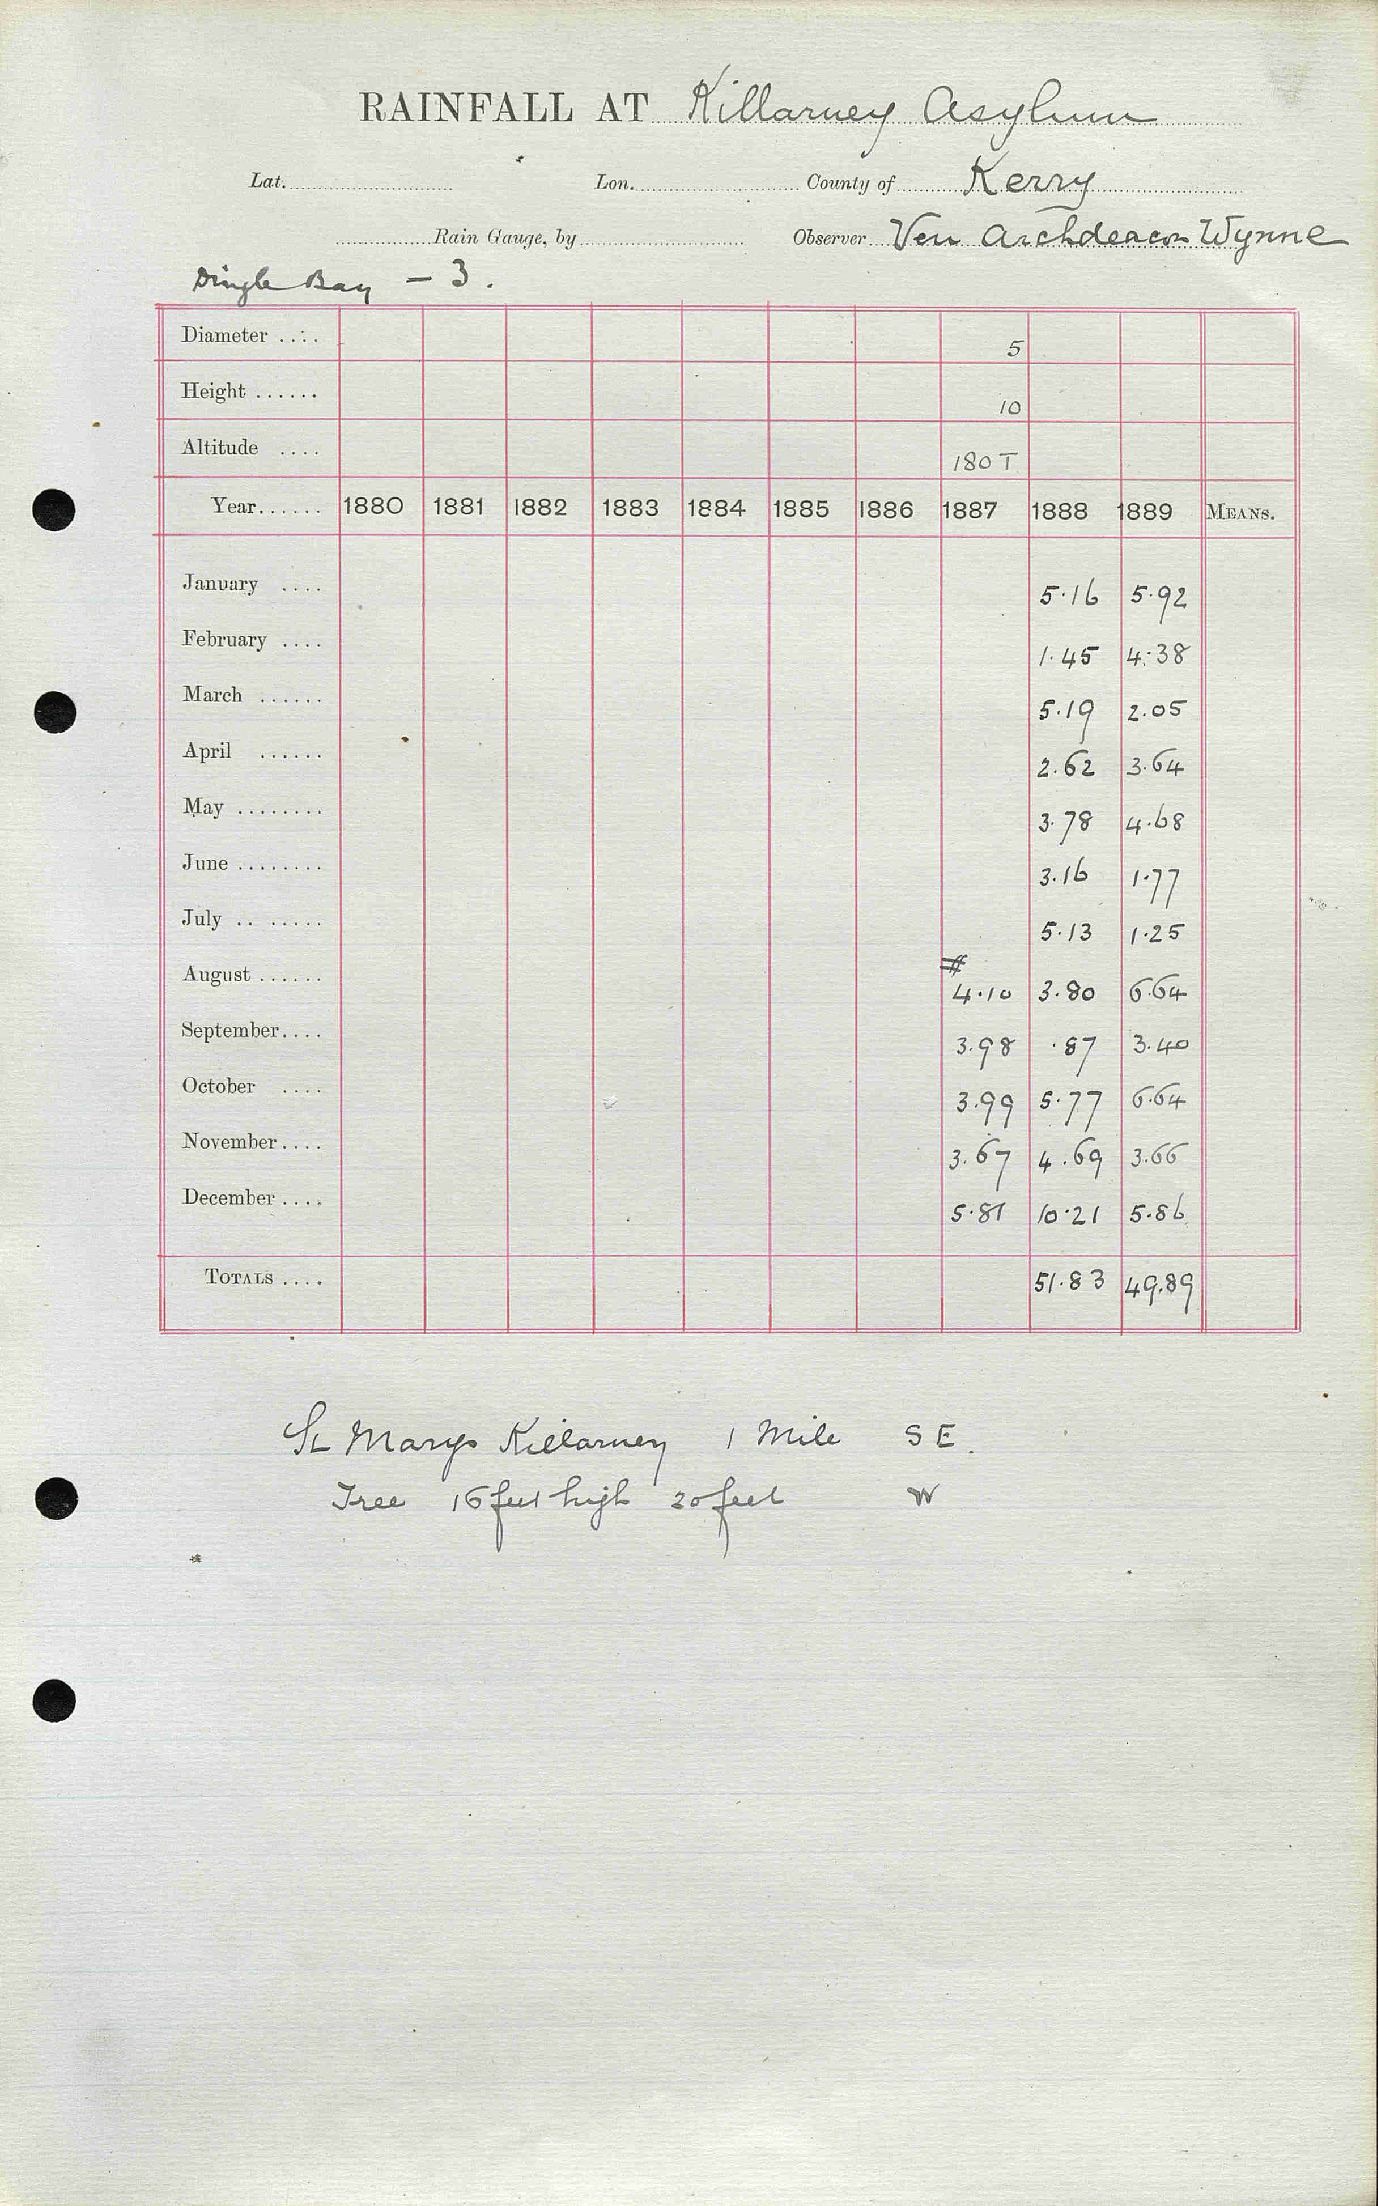 RAINFALL AT Killarney Asylum
Lat. Lon. County of Kerry
Rain Gauge, by Observer Ven Archdeacon Wynne
Dingle Bay - 3.
Diameter .... 5
Height ...... 10
Altitude .... 180 T
Year...... 1880 1881 1882 1883 1884 1885 1886 1887 1888 1889 MEANS.
January .... 5.16 5.92
February .... 1.45 4.38
March ...... 5.19 2.05
April ...... 2.62 3.64
May ........ 3.78 4.68
June ........ 3.16 1.77
July .. ..... 5.13 1.25
#
August ...... 4.10 3.80 6.64
September.... 3.98 .87 3.40
October .... 3.99 5.77 6.64
November.... 3.67 4.69 3.66
December .... 5.81 10.21 5.86
TOTALS .... 51.83 49.89
St Marys Killarney 1 Mile S E.
Tree 16 feet high 20 feet W